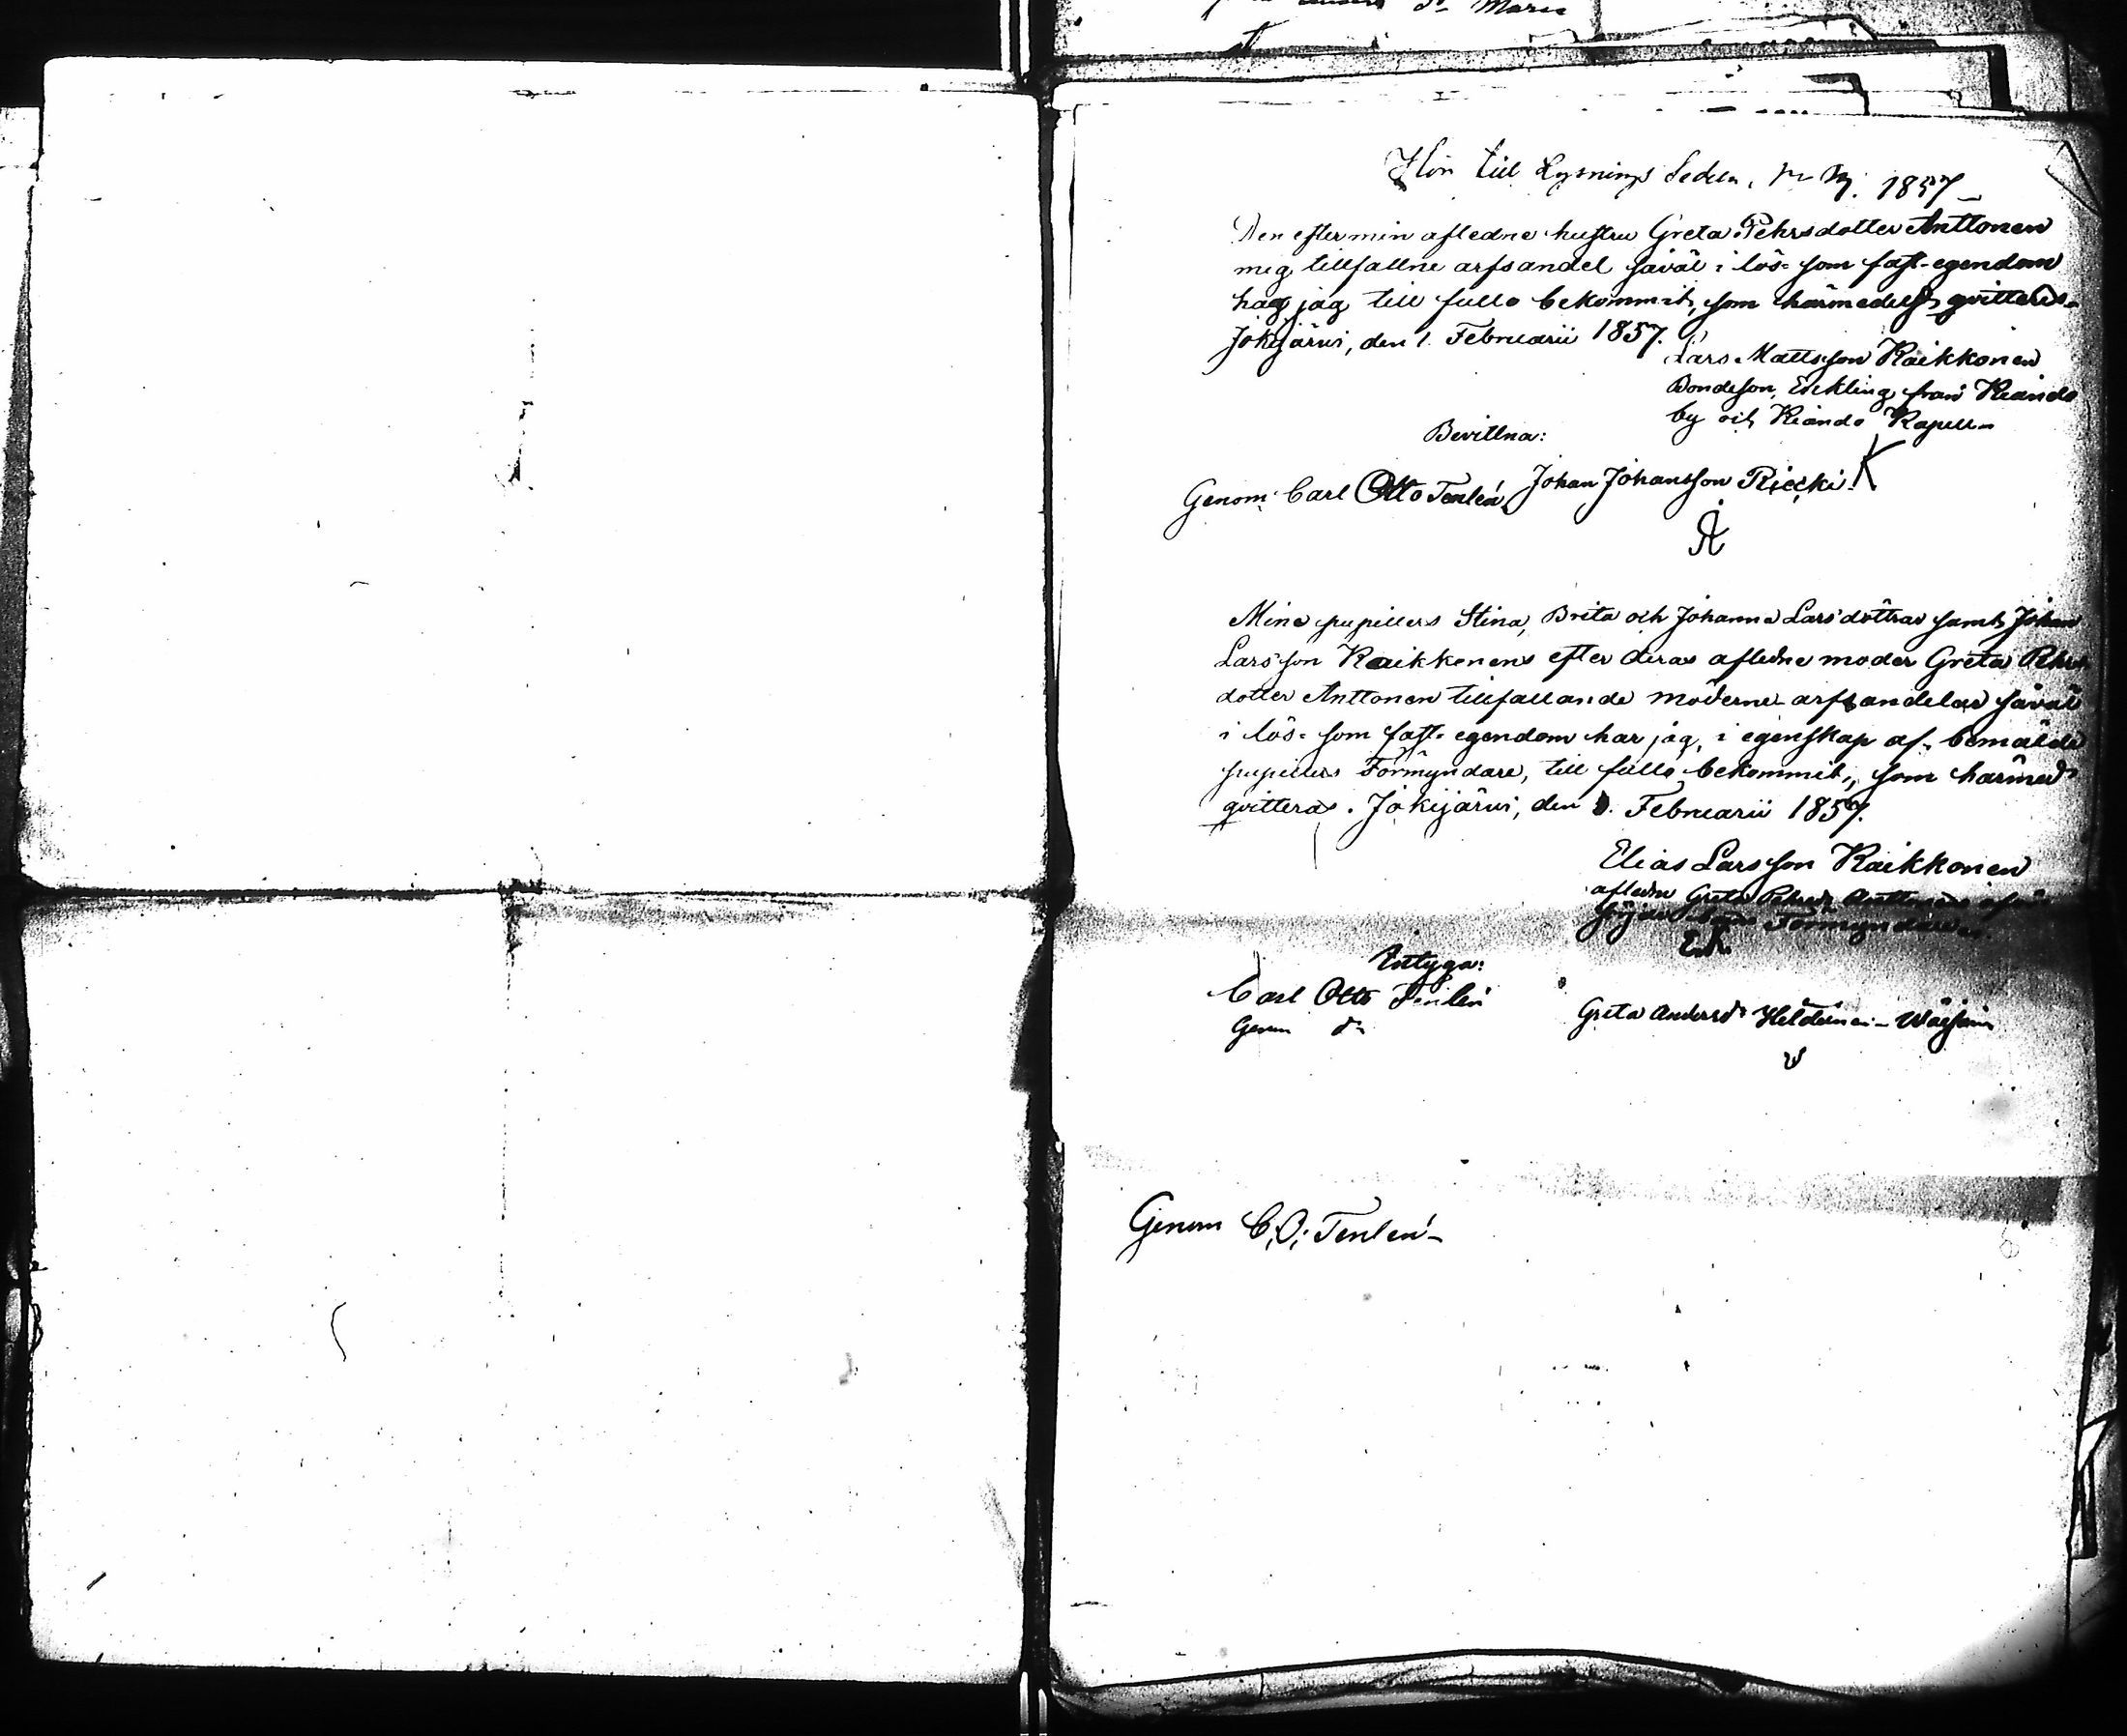 Hör till Lysnings Sedeln, 1857
Den efter min afledne hustru Greta Pehrsdotter Anttonen
mig tillfallne arfsandel såväl i lös- som fast-egendom
har jag till fullo bekommit, som härmedelst qvitteras.
Jokijärwi, den 1. Februarii 1857.
Lars Mattsson Raikkonen
Bondeson, Enkling från Kianda
by och Kianda Kapell
Bevittna:
Genom Carl Otto Tenlén, Johan Johansson Riecki.
Mine pupillers Stina, Brita och Johanna Larsdöttrar samt Johan
Larsson Raikkonens efter deras afledne moder Greta Pehrs
dotter Anttonen tillfallande möderne arfsandelar såväl
i lös- som fast-egendom har jag, i egenskap af bemälde
pupillers Förmyndare, till fullo bekommit, som härmed
qvitteras. Jokijärwi, den 1. Februarii 1857.
Elias Larsson Raikkonen
afledne Greta Pehrsdr Anttonens
Förmyndare
Intyga:
Carl Otto Tenlén
Genom dn
Greta Andersdr
Genom C. O. Tenlén